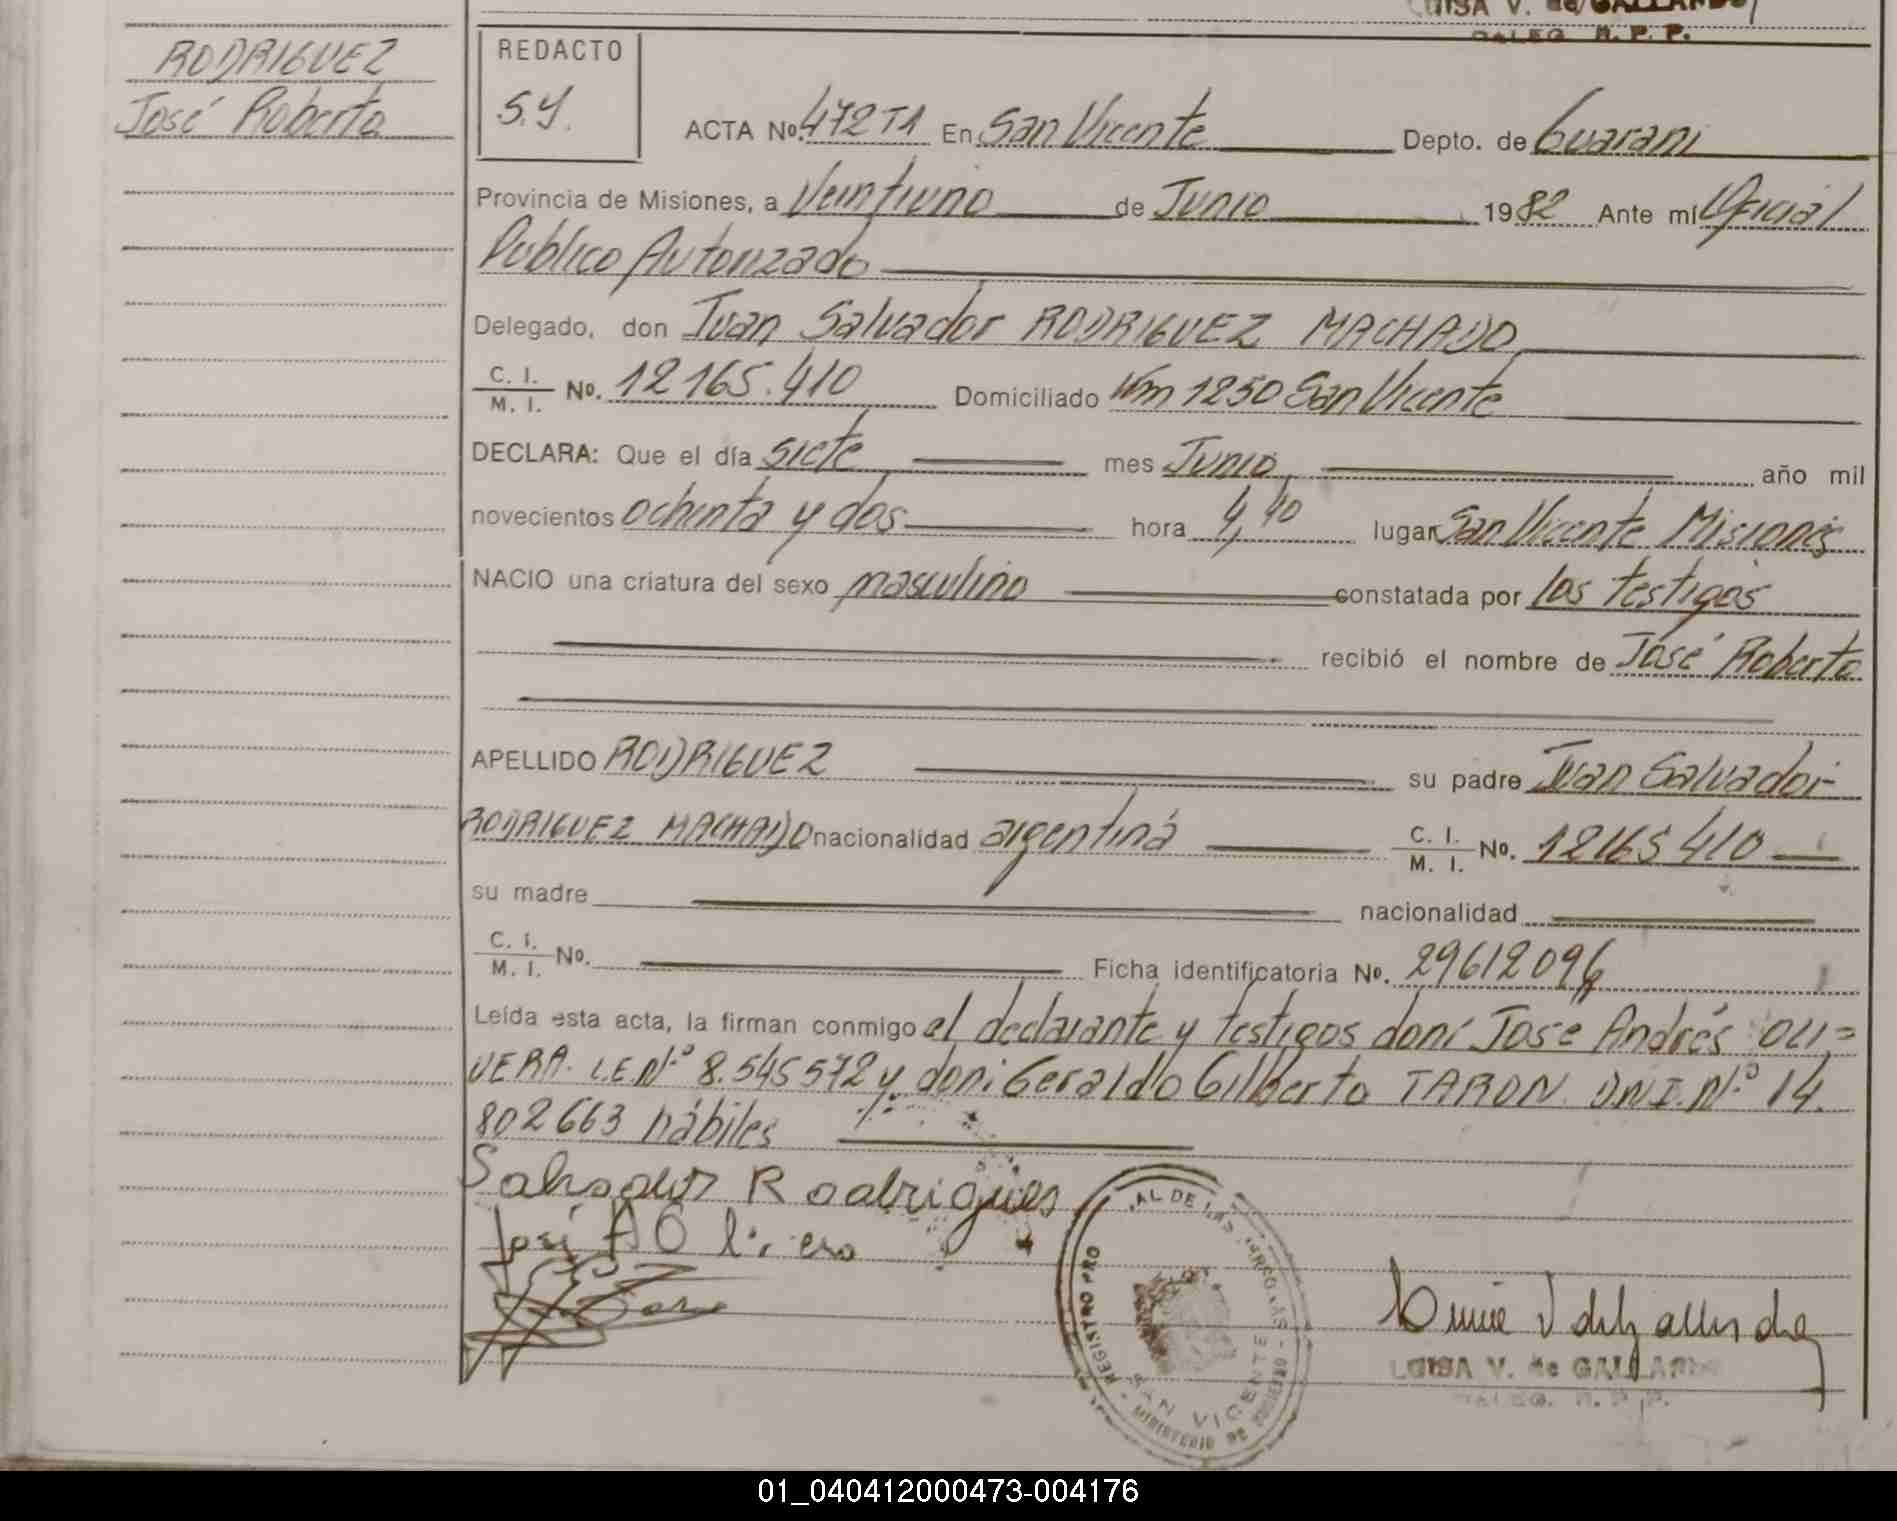 LUISA V. de GALLARDO
DALEG. R. P. P.
RODRIGUEZ
José Roberto
REDACTO
S.Y.
ACTA No. 472 T1 En San Vicente Depto. de Guarani
Provincia de Misiones, a Veintiuno de Junio 1982 Ante mi Oficial
Publico Autorizado
Delegado, don Juan Salvador RODRIGUEZ MACHADO
C. I. / M. I. No. 12165.410 Domiciliado Km 1250 San Vicente
DECLARA: Que el día siete mes Junio año mil
novecientos ochenta y dos hora 4,40 lugar San Vicente Misiones
NACIO una criatura del sexo masculino constatada por los testigos
recibió el nombre de José Roberto
APELLIDO RODRIGUEZ su padre Juan Salvador
RODRIGUEZ MACHADO nacionalidad argentina C. I. / M. I. No. 12165410
su madre nacionalidad
C. I. / M. I. No. Ficha identificatoria No. 29612096
Leída esta acta, la firman conmigo el declarante y testigos don: José Andrés OLI=
VERA. L.E.Nº 8.545572 y don: Geraldo Gilberto TARON D.N.I. Nº 14.
802663 hábiles
Salvador Rodrigues
José A Olivera
REGISTRO PRO AL DE LAS PERSONAS - MINISTERIO DE GOBIERNO -
SAN VICENTE
LUISA V. de GALLARDO
DALEG. R. P. P.
01_040412000473-004176